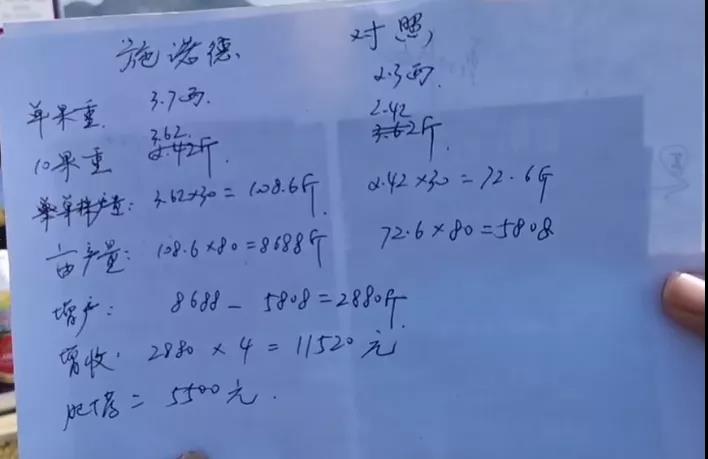 施诺德、 对照,
单果重 3.7两. 2.3两.
10果重 3.62斤. 2.42斤.
单株产量: 3.62×30=108.6斤. 2.42×30=72.6斤
亩产量: 108.6×80=8688斤 72.6×80=5808
增产: 8688-5808=2880斤.
增收. 2880×4=11520元
=5500元.